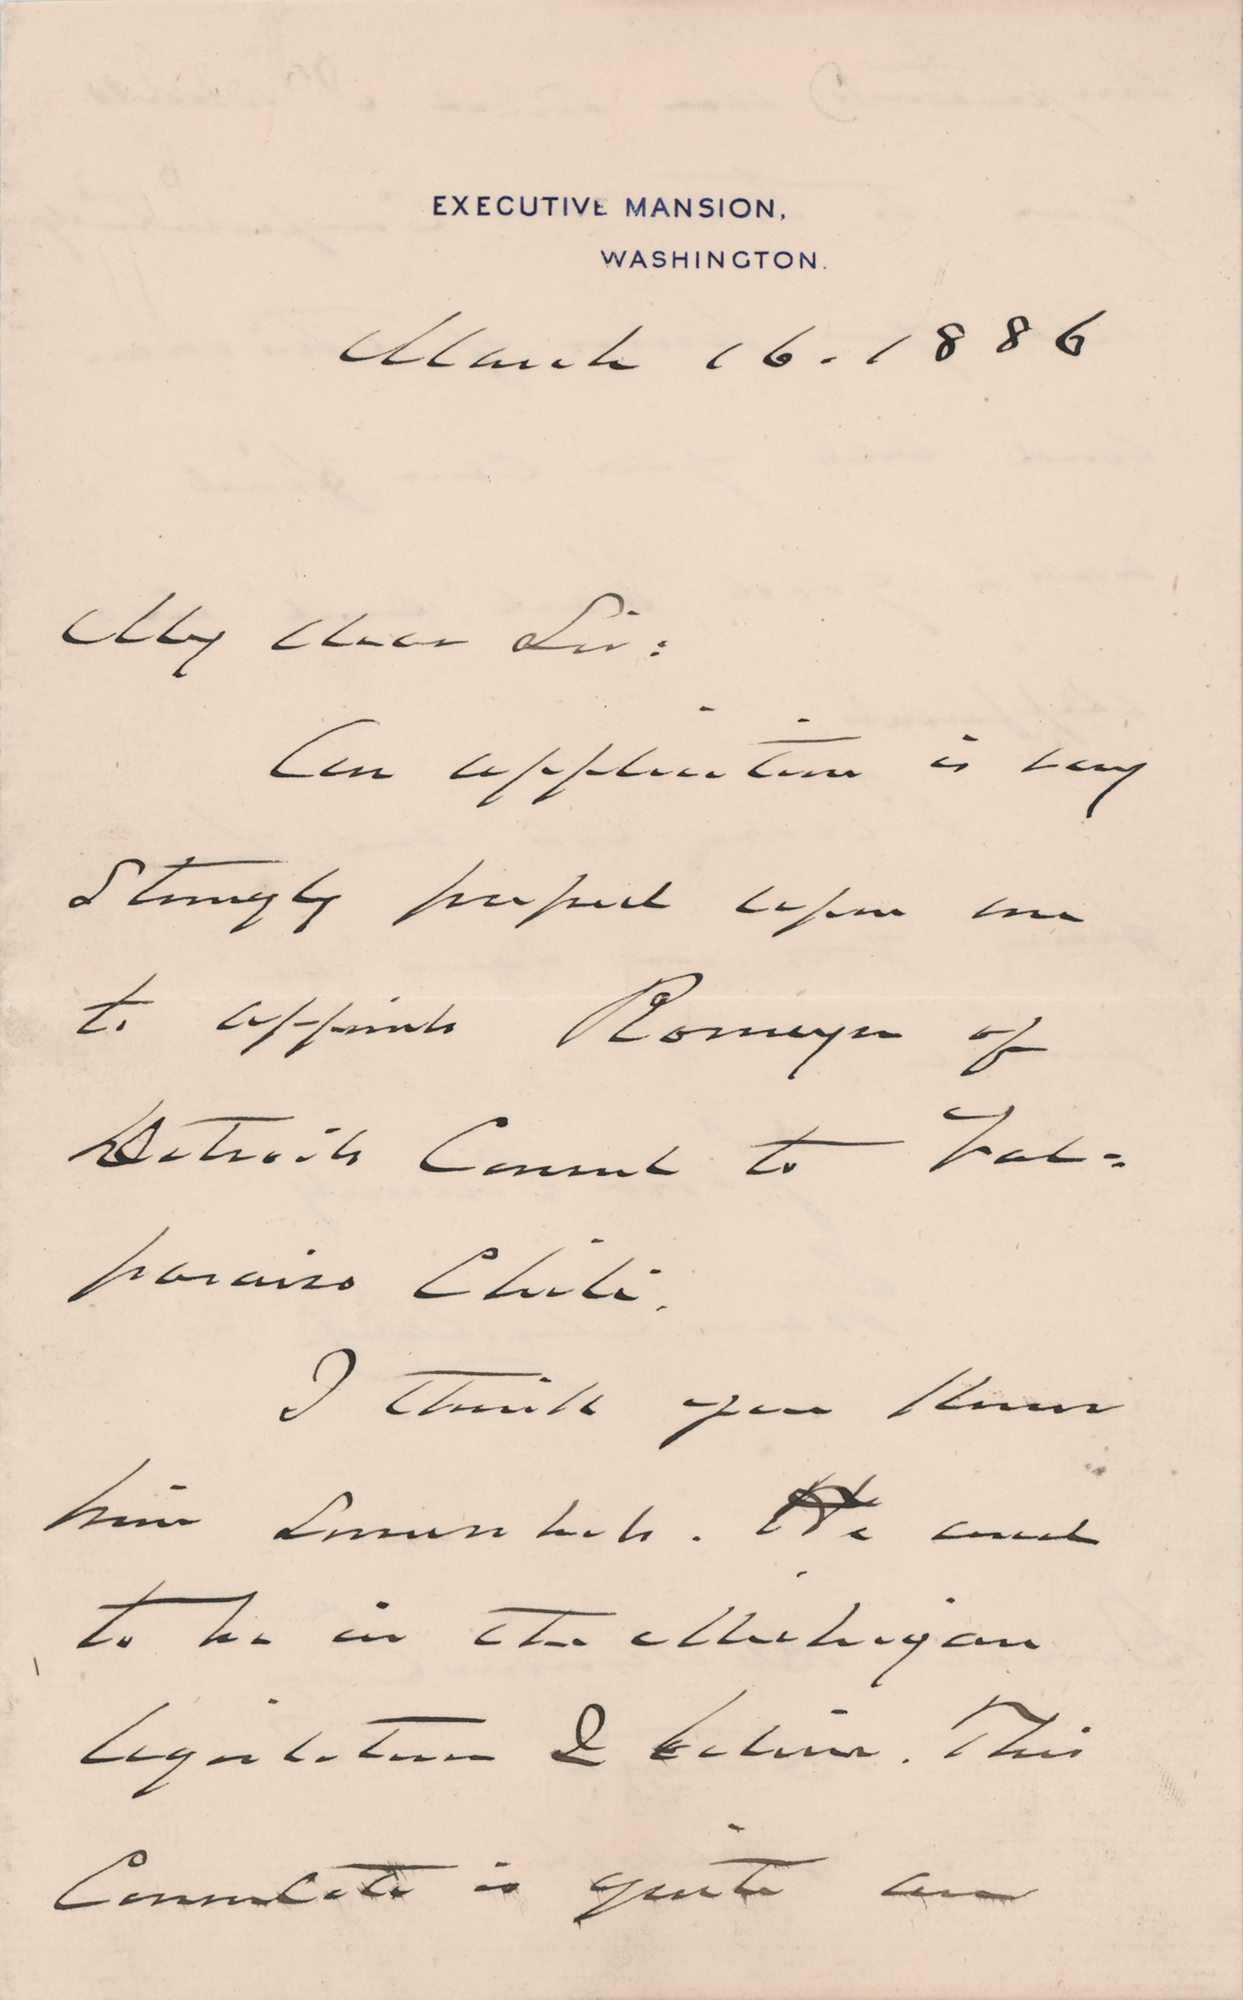 EXECUTIVE MANSION,
WASHINGTON.
March 16. 1886
My dear Sir:
An application is very
strongly pressed upon me
to appoint Romeyn of
Detroit Consul to Val=
paraiso Chili.
I think you know
him somewhat. He used
to be in the Michigan
legislature I believe. This
Consulate is quite an